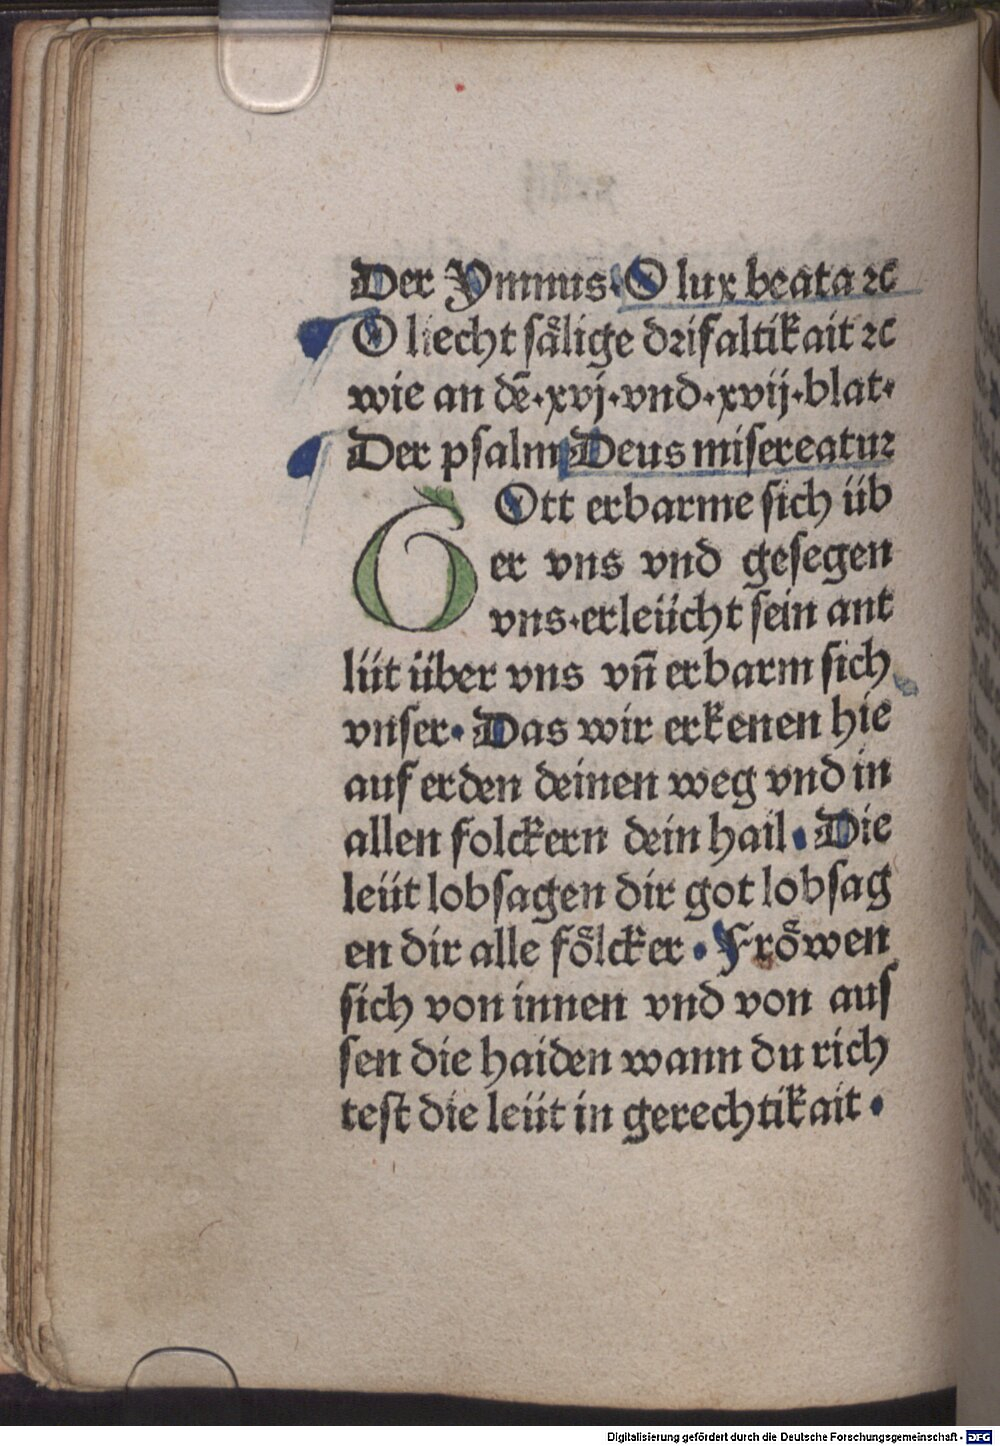 Der Ymnus· O lux beata ⁊c
O liecht sälige drifaltikait ⁊c
wie an dē·xvj·vnd·xvij·blat·
Der psalm Deus misereatur
GOtt erbarme sich üb
er vns vnd gesegen
vns·erleücht sein ant
lüt über vns vn̄ erbarm sich
vnser· Das wir erkenen hie
auf erden deinen weg vnd in
allen folckern dein hail· Die
leüt lobsagen dir got lobsag
en dir alle fölcker· Fröwen
sich von innen vnd von aus
sen die haiden wann du rich
test die leüt in gerechtikait·
Digitalisierung gefördert durch die Deutsche Forschungsgemeinschaft - DFG